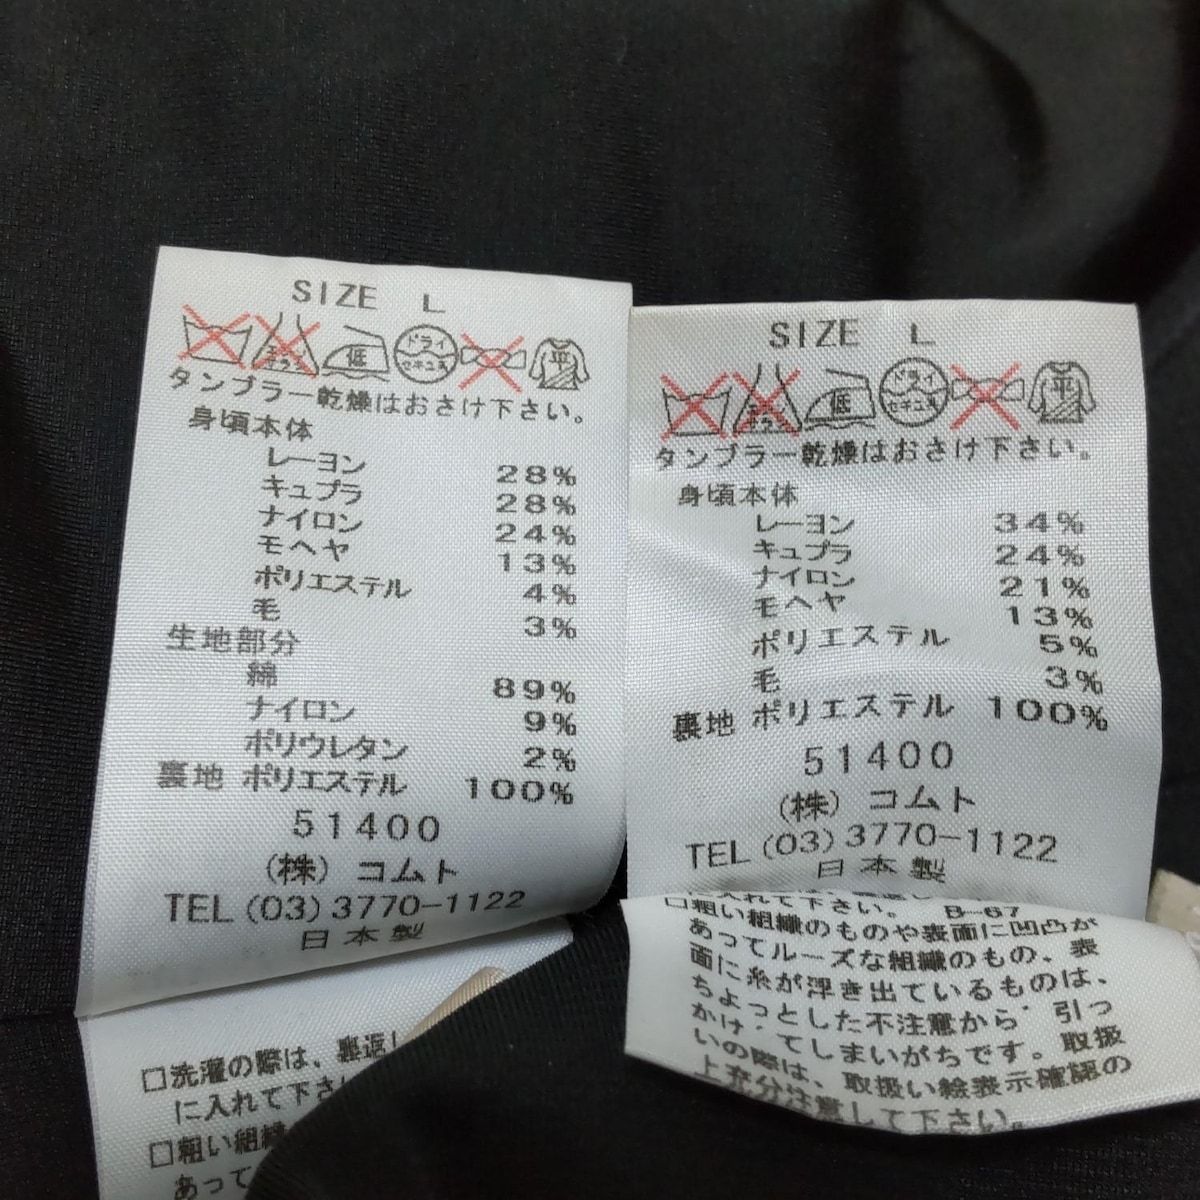 SIZE L
エンソ サラシ 低 ドライ セキユ系 平
タンブラー乾燥はおさけ下さい。
身頃本体
レーヨン 28%
キュプラ 28%
ナイロン 24%
モヘヤ 13%
ポリエステル 4%
毛 3%
生地部分
綿 89%
ナイロン 9%
ポリウレタン 2%
裏地 ポリエステル 100%
51400
(株) コムト
TEL (03) 3770-1122
日本製
□洗濯の際は、裏返し
に入れて下さ
□粗い組織
あって
SIZE L
エンソ サラシ 低 ドライ セキユ系 平
タンブラー乾燥はおさけ下さい。
身頃本体
レーヨン 34%
キュプラ 24%
ナイロン 21%
モヘヤ 13%
ポリエステル 5%
毛 3%
裏地 ポリエステル 100%
51400
(株) コムト
TEL (03) 3770-1122
日本製
に入れて下さい。 B-67
□粗い組織のものや表面に凹凸が
あってルーズな組織のもの、表
面に糸が浮き出ているものは、
ちょっとした不注意から゛引っ
かけ゛てしまいがちです。取扱
いの際は、取扱い絵表示確認の
上充分注意して下さい。